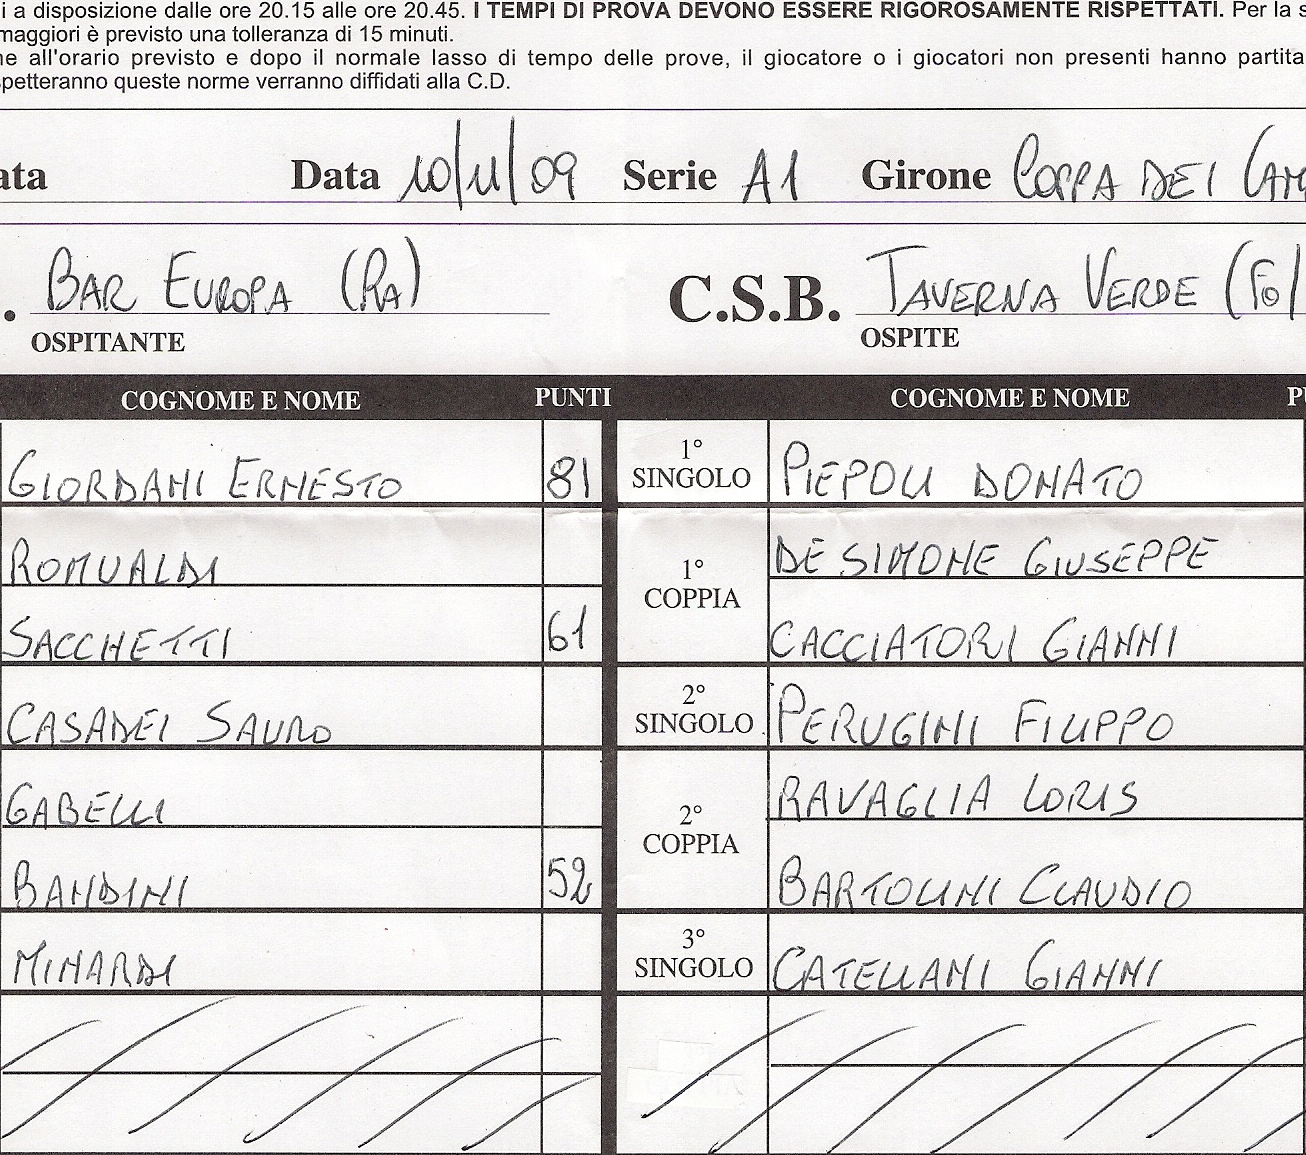 i a disposizione dalle ore 20.15 alle ore 20.45. I TEMPI DI PROVA DEVONO ESSERE RIGOROSAMENTE RISPETTATI. Per la s
maggiori è previsto una tolleranza di 15 minuti.
ne all'orario previsto e dopo il normale lasso di tempo delle prove, il giocatore o i giocatori non presenti hanno partita
spetteranno queste norme verranno diffidati alla C.D.
ata Data 10/11/09 Serie A1 Girone COPPA DEI CAM
. BAR EUROPA (RA) C.S.B. TAVERNA VERDE (FO)
OSPITANTE OSPITE
COGNOME E NOME PUNTI COGNOME E NOME PU
GIORDANI ERNESTO 81 1° SINGOLO PIEPOLI DONATO
ROMUALDI 1° COPPIA DE SIMONE GIUSEPPE
SACCHETTI 61 CACCIATORI GIANNI
CASADEI SAURO 2° SINGOLO PERUGINI FILIPPO
GABELLI 2° COPPIA RAVAGLIA LORIS
BANDINI 52 BARTOLINI CLAUDIO
MINARDI 3° SINGOLO CATELLANI GIANNI